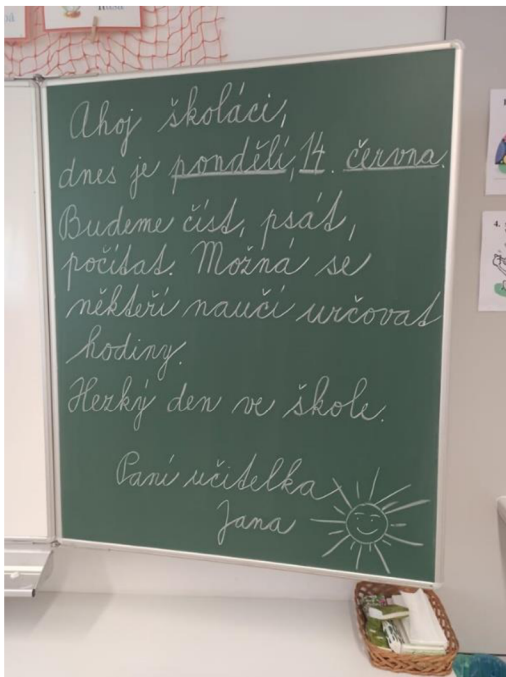 Ahoj školáci,
dnes je pondělí, 14. června.
Budeme číst, psát,
počítat. Možná se
někteří naučí určovat
hodiny.
Hezký den ve škole.
Paní učitelka
Jana
4.